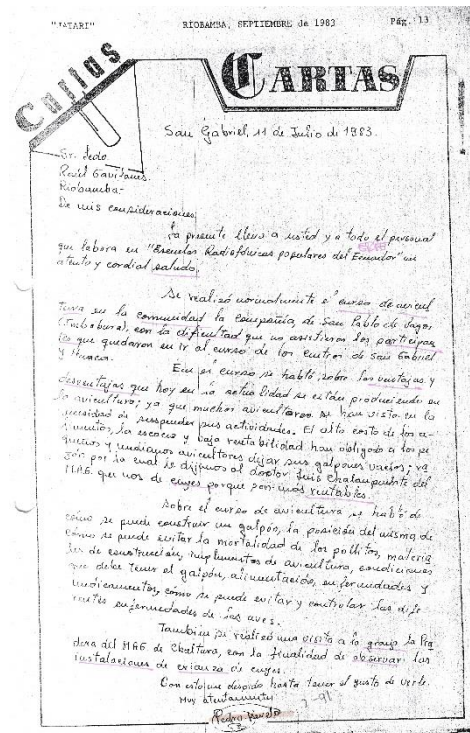 "JATARI" RIOBAMBA, SEPTIEMBRE de 1983 Pág. 13
Cartas
CARTAS
San Gabriel, 11 de Julio de 1983.
Sr. Ledo.
Raúl Gavilanes.
Riobamba-
De mis consideraciones:
La presente lleva a usted y a todo el personal
que labora en "Escuelas Radiofónicas populares del Ecuador" un
atento y cordial saludo.
Se realizó normalmente el curso de avicul
tura en la comunidad la compañía de San Pablo de Lago,
(Imbabura), con la dificultad que no asistieron los participan
tes que quedaron en ir al curso de los centros de San Gabriel
y Huaca.
En el curso se habló, sobre las ventajas y
desventajas que hoy en la actualidad se están produciendo en
la avicultura; ya que muchos avicultores se han visto en la
necesidad de suspender sus actividades. El alto costo de los a-
limentos, la escasez y baja rentabilidad han obligado a los pe
queños y medianos avicultores dejar sus galpones vacíos; ra
zón por la cual le dijimos al doctor Luis Chalampuente del
MAG. que nos de cuyes porque son más rentables.
Sobre el curso de avicultura, se habló de
cómo se puede construir un galpón, la posición del mismo, de
cómo se puede evitar la mortalidad de los pollitos, materia
les de construcción, implementos de avicultura, condiciones
que debe tener el galpón, alimentación, enfermedades y
medicamentos, como se puede evitar y controlar las dife
rentes enfermedades de las aves.
También se realizó una visita a la granja la Pra
dera del MAG de Chaltura, con la finalidad de observar las
instalaciones de crianza de cuyes.
Con esto me despido hasta tener el gusto de verle.
Muy atentamente
Pedro Revelo